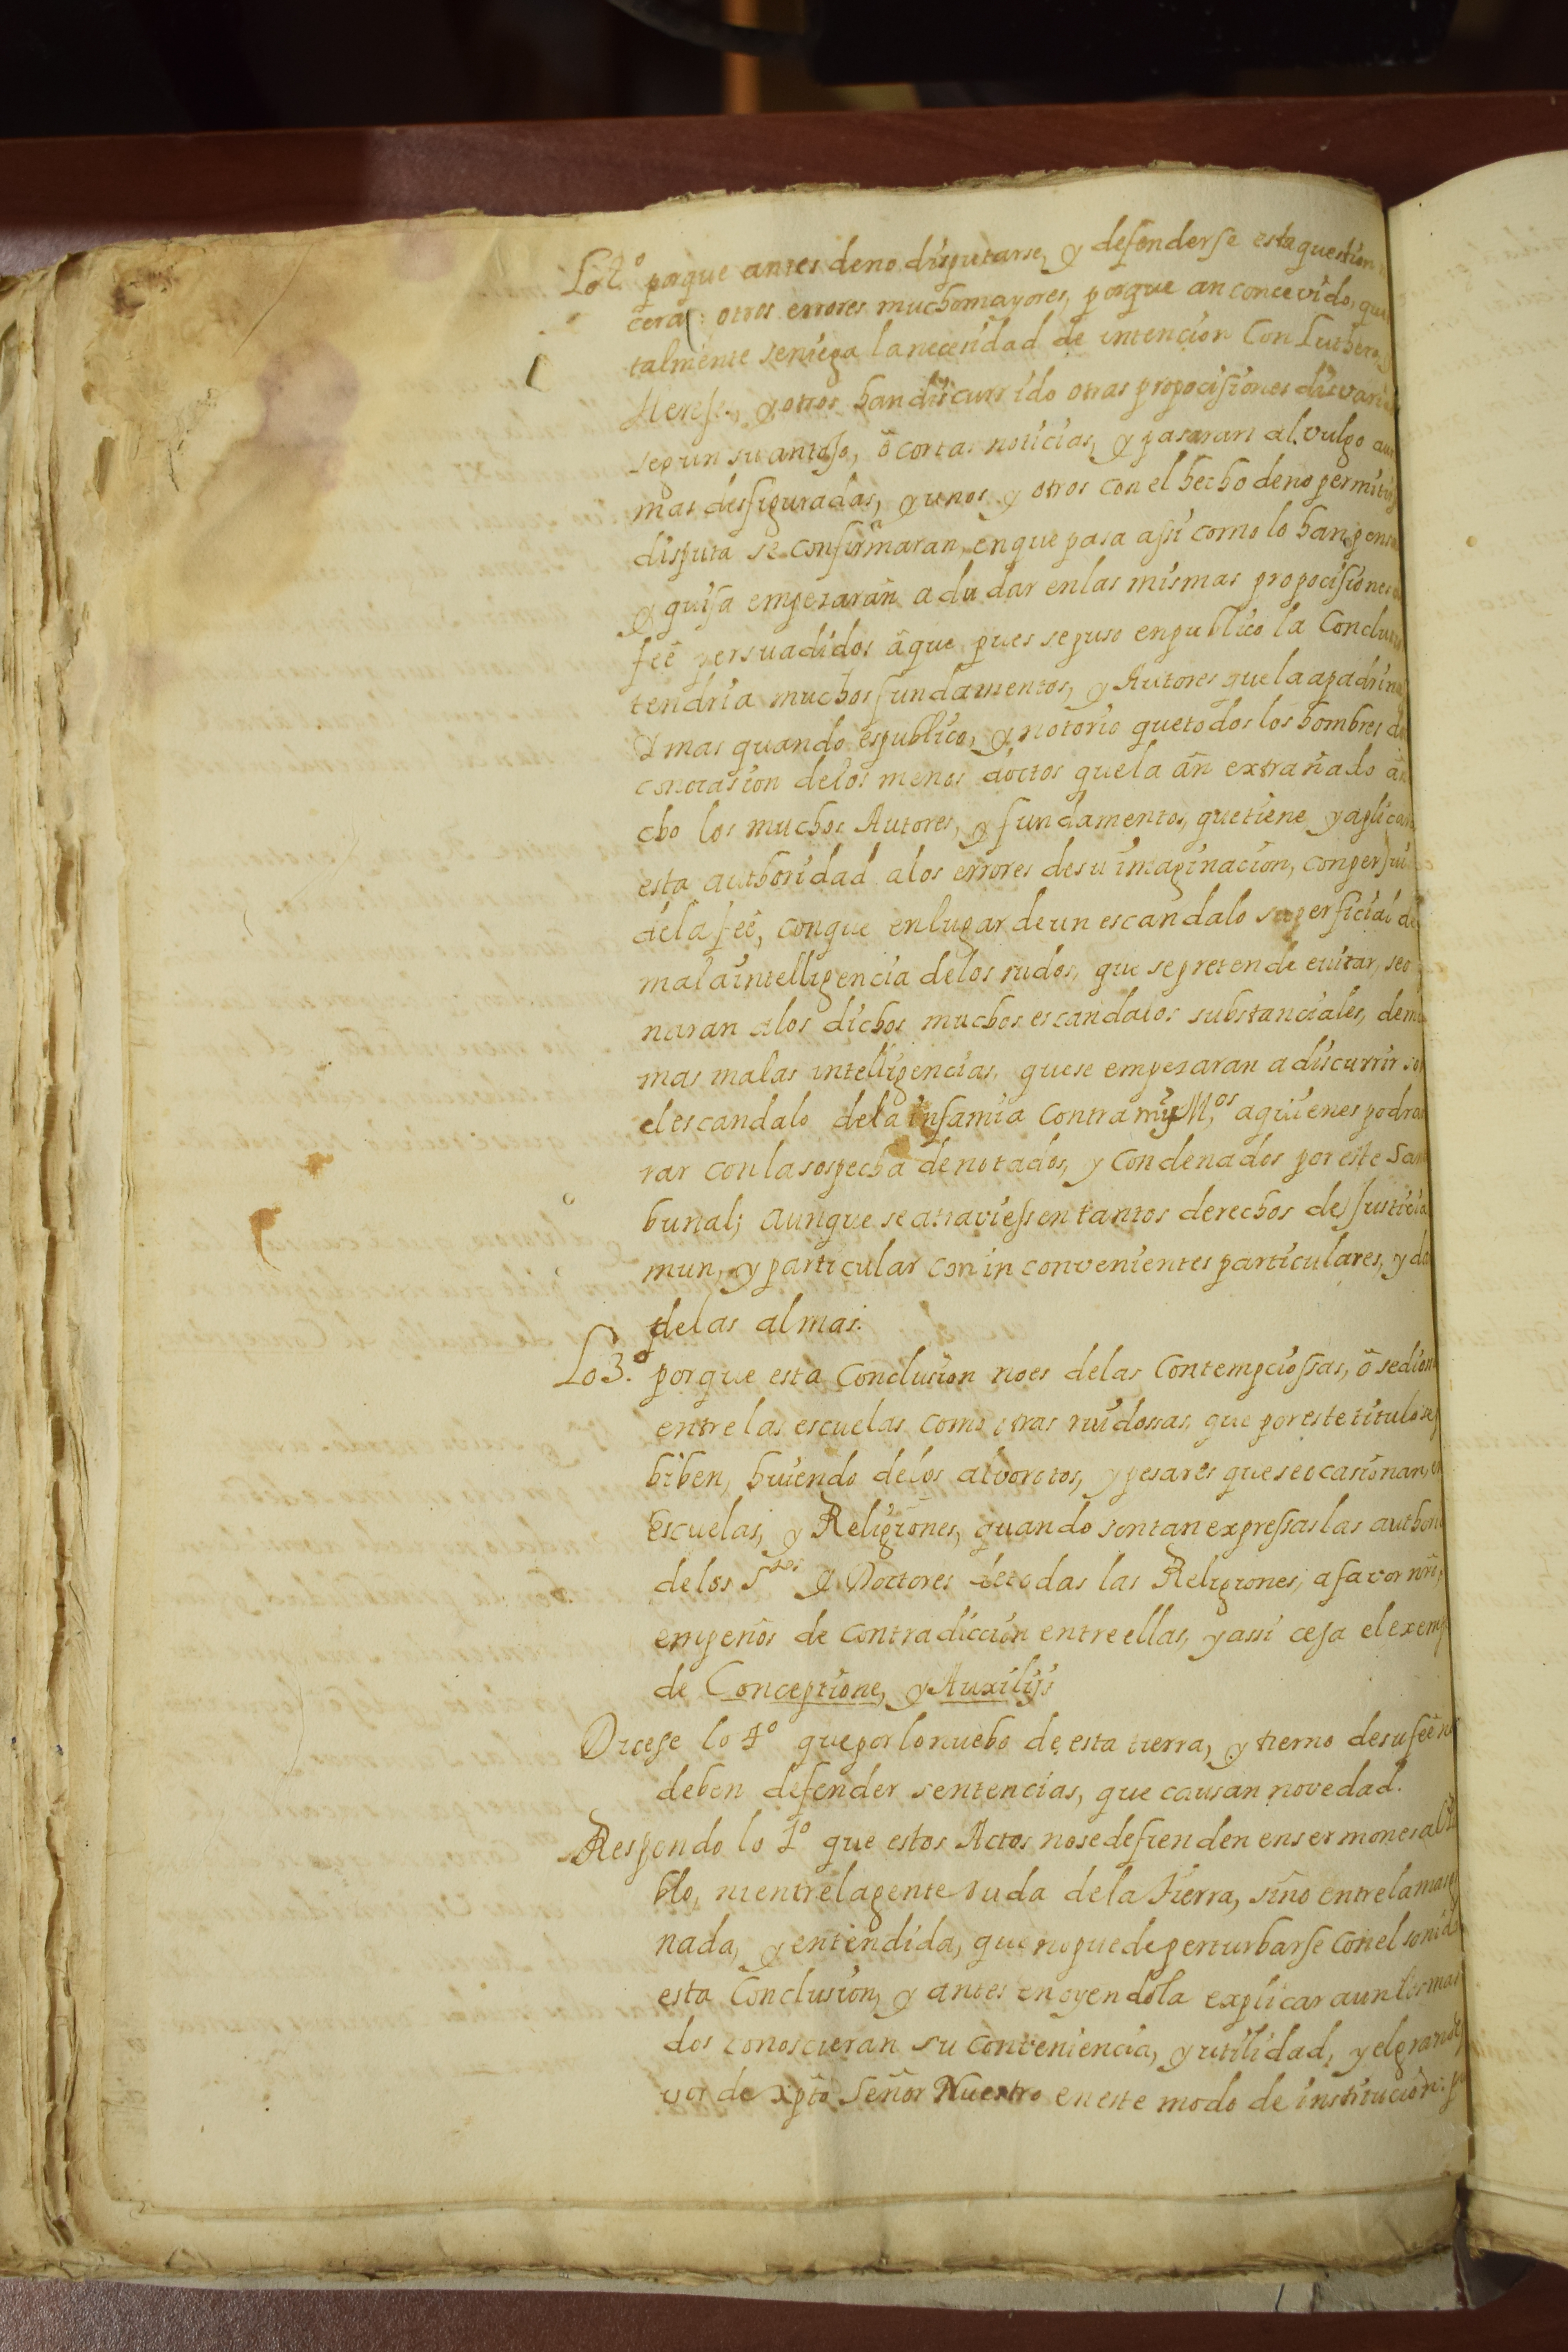 Lo 2.º porque antes de no disputarse, y defenderse esta question
cera: otros errores mucho mayores, porque an concevido, que
talmente se niega la necesidad de intencion Con Luthero,
Herese, y otros han discurrido otras propocisiones disvari
segun su antojo, ô cortas noticias, y pasaran al vulgo aun
mas desfiguradas, y unos y otros con el hecho de no permitir
disputa se confirmaran, en que pasa assi como lo han pens
y quisa empezaran a dudar en las mismas propocisiones
feê persuadidos âque pues se puso en publico la Conclus
tendria muchos fundamentos, y Autores que la apadrin
Y mas quando es publico, y notorio que todos los hombres d
con ocasion de los menos doctos que la ân extrañado
cho los muchos Autores, y fundamentos, que tiene y aplica
esta authoridad a los errores de su imaginacion, con perjui
de la feê, con que en lugar de un escandalo superficial de
mala intelligencia de los rudos, que se pretende euitar, seo
naran a los dichos muchos escandalos substanciales, de
mas malas intelligencias, que se empezaran a discurrir so
el escandalo de la infamia contra my M.os a quienes podra
rar con la sospecha de notados, y Condenados por este San
bunal; aunque se atraviessen tantos derechos de Justicia
mun, y particular con in convenientes particulares, y da
de las almas.
Lo 3.º porque esta Conclusion no es de las Contempciossas, ô sedion
entre las escuelas como otras ruidossas, que por este titulo se
hiben, huiendo de los alvorotos, y pesares que se ocasionan, en
Escuelas, y Religiones, quando son tan expressas las authori
de los S.tos y Doctores de todas las Religiones, a favor nr̃o,
empeños de contradiccion entre ellas, y assi cesa el exemp
de Conceptione, y Auxilijs
Dicese lo 4º que por lo nuebo de esta tierra, y tierno de su feê n
deben defender sentencias, que causan novedad.
Respondo lo 1º que estos Actos no se defienden en sermones al
blo, ni entre la gente ruda de la tierra, sino entre la mas
nada, y entendida, que no puede perturbarse con el sonid
esta Conclusion, y antes en oyendola explicar aun los mas
dos conoscieran su conveniencia, y utilidad, y el grande
vor de xpto Señor Nuestro en este modo de institucion: p